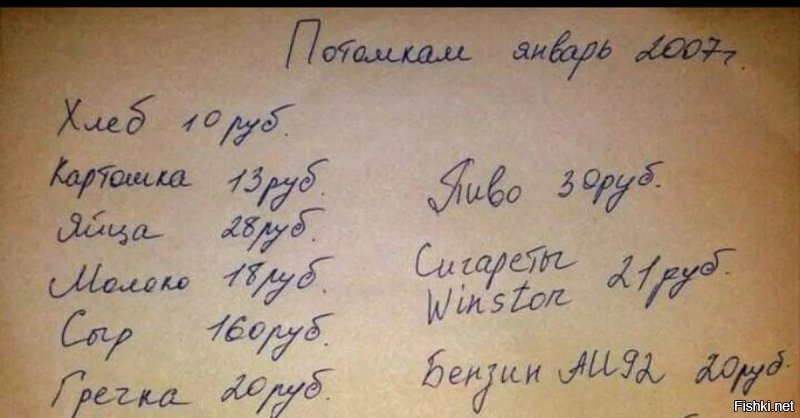 Потомкам январь 2007г.
Хлеб 10руб.
Картошка 13руб.
Яйца 28руб.
Молоко 18руб.
Сыр 160руб.
Гречка 20руб.
Пиво 30руб.
Сигареты
Winston 21руб.
Бензин АИ92 20руб.
Fishki.net